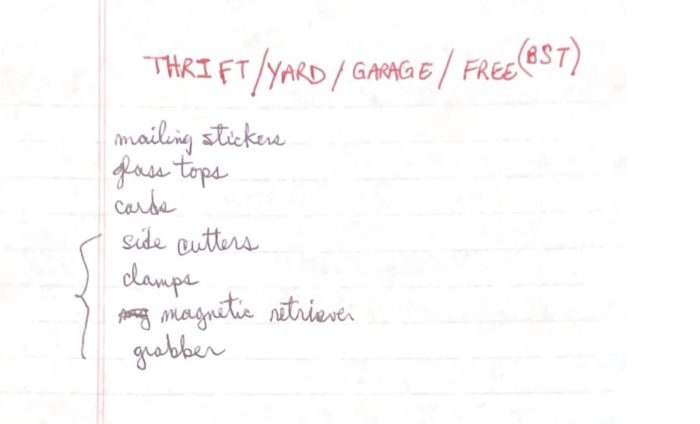 THRIFT/YARD/GARAGE/FREE (BST)
mailing stickers
glass tops
cards
side cutters
clamps
magnetic retriever
grabber